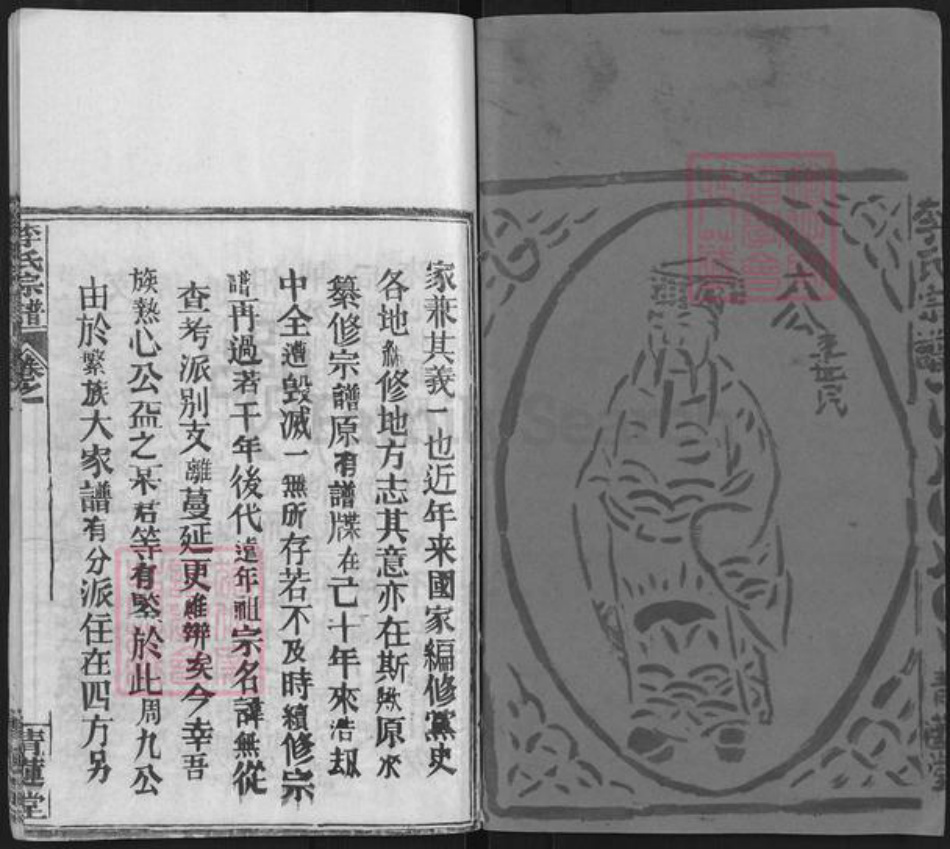 李氏宗譜
太公李世民
家兼其義一也近年來國家編修黨史
各地編修地方志其意亦在斯欤原來
纂修宗譜原有譜牒在己十年來浩劫
中全遭毀滅一無所存若不及時續修宗
譜再過若干年後代遠年祖宗名諱無從
查考派別支離蔓延更难辩矣今幸吾
族熱心公益之某君等有鑒於此周九公
由於繁族大家譜有分派住在四方另
李氏宗譜
卷之一
青蓮堂